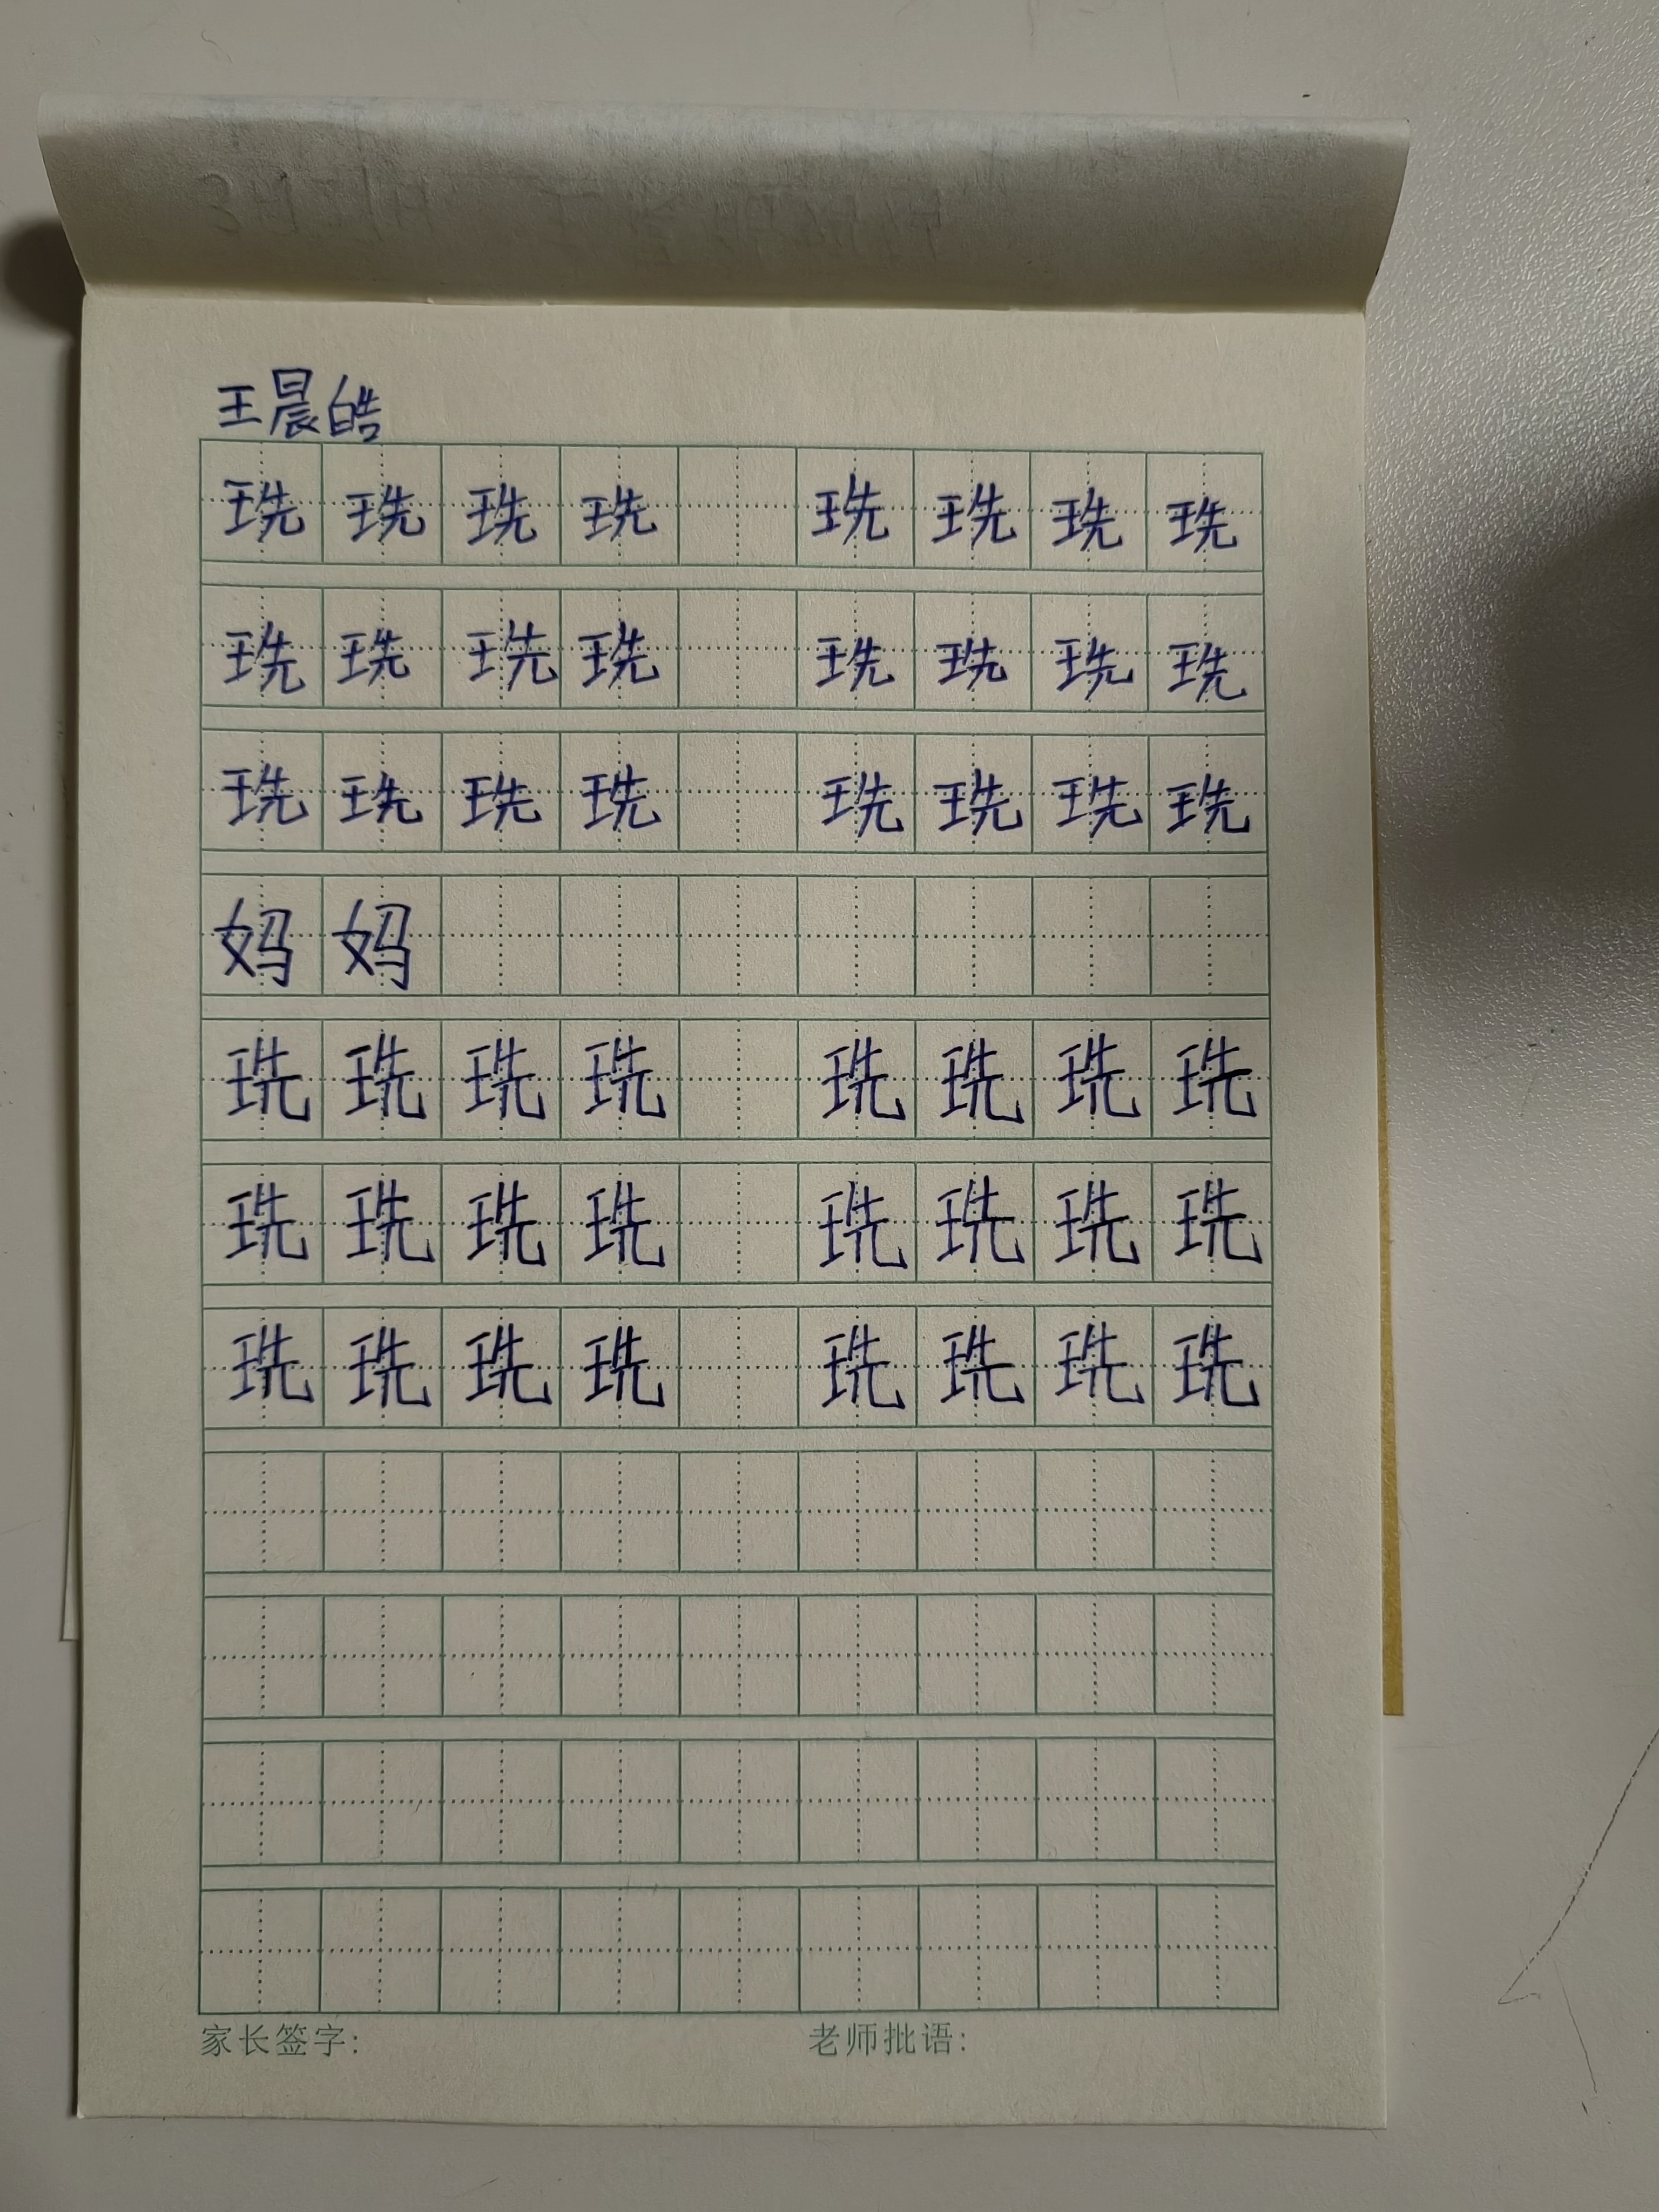 王晨皓
珗珗珗珗 珗珗珗珗
珗珗珗珗 珗珗珗珗
珗珗珗珗 珗珗珗珗
妈妈
珗珗珗珗 珗珗珗珗
珗珗珗珗 珗珗珗珗
珗珗珗珗 珗珗珗珗
家长签字: 老师批语: